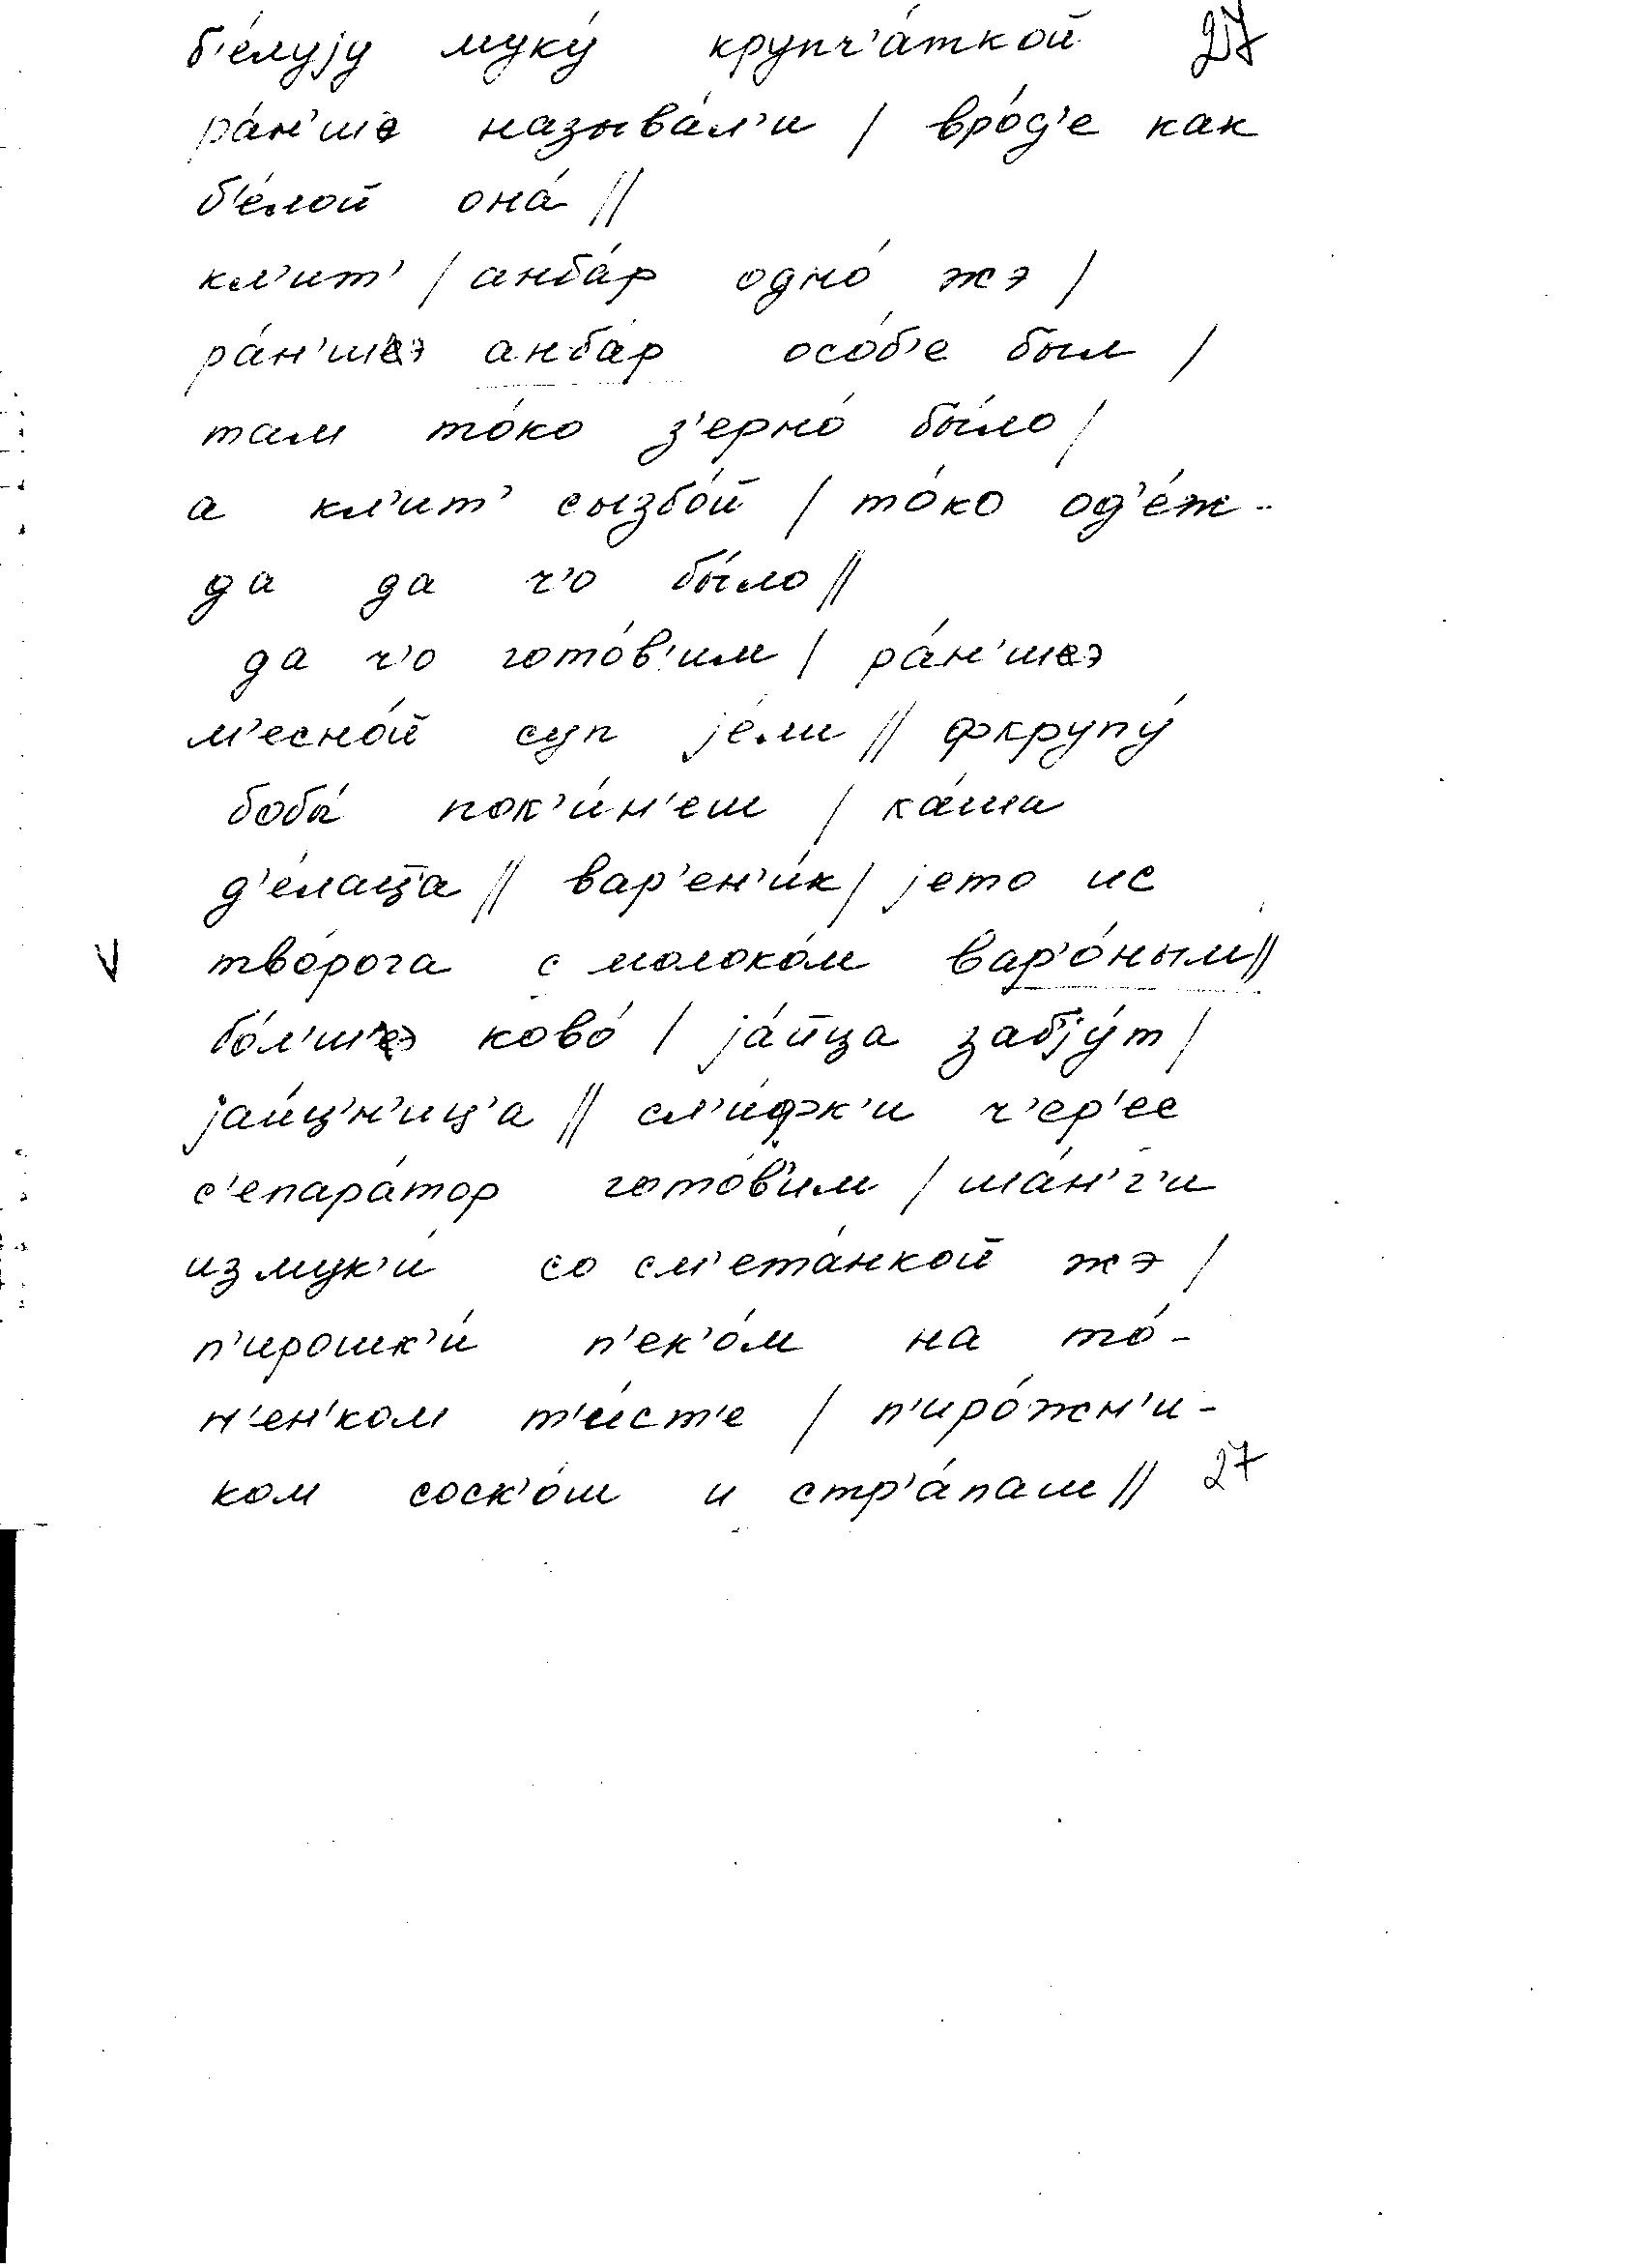 б'е́лују муку́ крупч'а́ткой 27
ра́н'ше называ́л'и / вро́д'е как
б'е́лой она́ //
кл'ит' / анба́р одно́ жэ /
ра́н'шэ анба́р осо́б'е был /
там то́ко з'ерно́ бы́ло /
а кл'ит' сызбо́й / то́ко од'е́ж-
да да ч'о бы́ло //
да ч'о гото́в'им / ра́н'шэ
м'есно́й суп је́ли // фкрупу́
бобы́ пок'и́н'еш / ка́ша
д'е́лаца // вар'ен'и́к / јето ис
тво́рога с молоко́м вар'о́ным //
V
бо́л'шэ ково́ / ја́йца забју́т /
јаи́ц'н'иц'а // сл'и́фк'и ч'ер'ес
с'епара́тор гото́в'им / ша́н'г'и
из мук'и́ со см'ета́нкой жэ /
п'ирошк'и́ п'ек'о́м на то́-
н'ен'ком т'и́ст'е / п'иро́жн'и-
ком соск'о́ш и стр'а́паш // 27